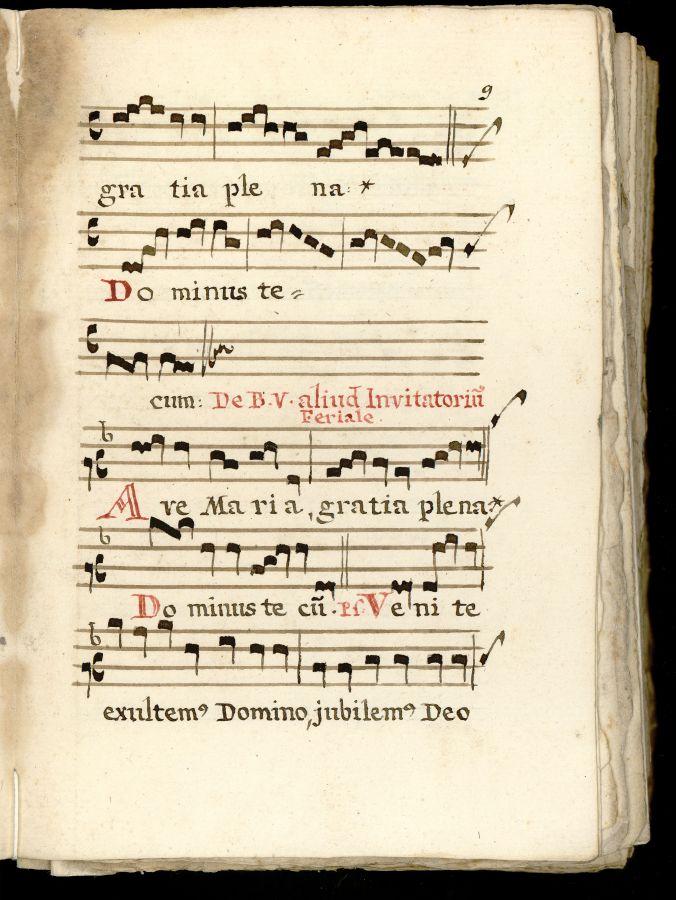 9
gra tia ple na *
Do minus te=
cum: De B.V. aliud Invitatoriũ
Feriale.
Ave Maria, gratia plena *
Do minus te cũ. Ps. Ve ni te
exultemꝰ Domino, jubilemꝰ Deo